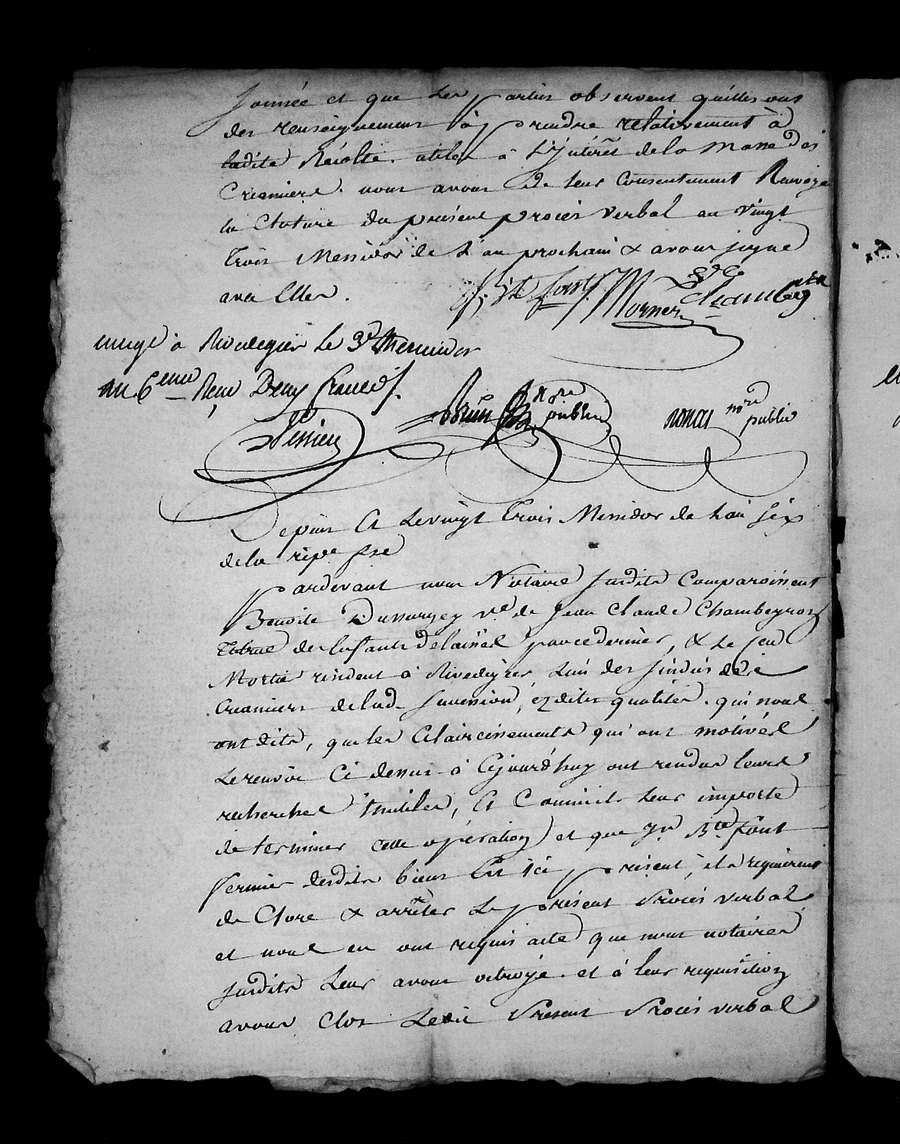 Journée et que les parties observent quelles ont
des renseignement à prendre relativement à
ladite Récolte. utiles à L'Interêt de la Masse des
Creanciers. nous avons De leur Consentement Renvoyé
la Cloture du présent procès verbal au vingt
trois Messidor de L'an prochain & avons signé
avec Elles.
font Morner Chambeyron
à Rivedegier Le 3e Messidor
an 6eme Reçu Deux francs
nore public nore public
Depuis Et Le vingt trois Messidor de Lan six
de la répe fse
Pardevant nous Notaire Susdits Comparoissent
Benoite Dussurgey ve de Jean Claude Chambeyron
Tutrice des Enfants delaissés par ce dernier, & Le
Mortié resident à Rivedegier, L'un des sindics des
Creanciers de lad. Succession, esdites qualités. qui nous
ont dits, que les Eclaircissements qui ont motivés
Le renvoi Ci dessus à Cejourd'huy ont rendus leurs
recherches Inutiles, Et Comme il Leur importe
de terminer cette opération et que Jn Bte font
fermier desdits biens Est ici présent, ils requierent
de Clore & arrêter Le présent Procès verbal
et nous en ont requis acte que nous notaires
susdits Leur avons octroyé. et à leur requisition
avons Clos Ledit Présent Procès verbal